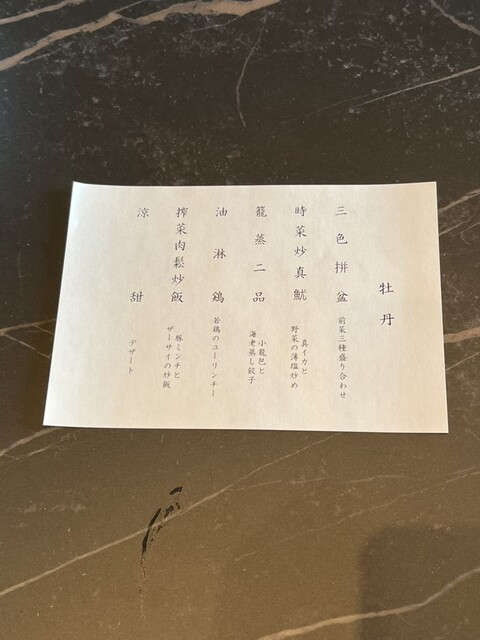 牡丹
三色拼盆
前菜三種盛り合わせ
時菜炒真魷
真イカと
野菜の薄塩炒め
籠蒸二品
小籠包と
海老蒸し餃子
油淋鶏
若鶏のユーリンチー
搾菜肉鬆炒飯
豚ミンチと
ザーサイの炒飯
涼甜
デザート